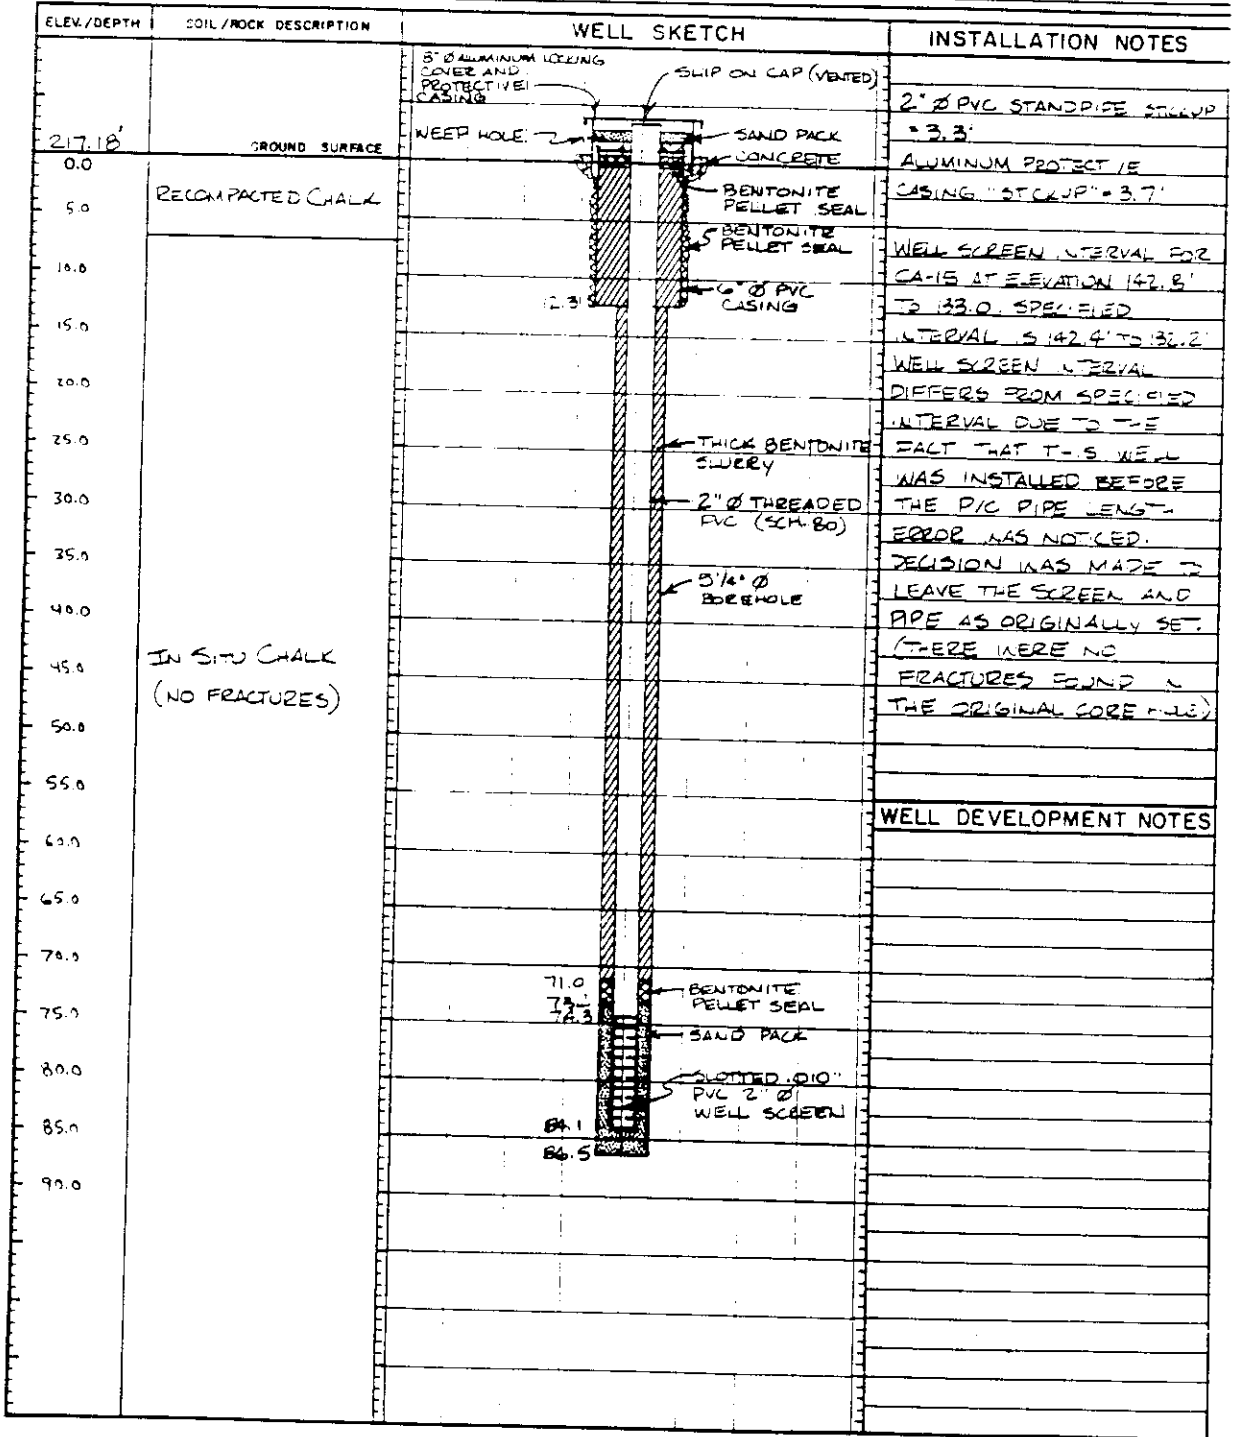 ELEV./DEPTH
SOIL/ROCK DESCRIPTION
WELL SKETCH
INSTALLATION NOTES
217.18'
GROUND SURFACE
0.0
5.0
10.0
15.0
20.0
25.0
30.0
35.0
40.0
45.0
50.0
55.0
60.0
65.0
70.0
75.0
80.0
85.0
90.0
RECOMPACTED CHALK
IN SITU CHALK
(NO FRACTURES)
8" Ø ALUMINUM LOCKING
COVER AND
PROTECTIVE
CASING
SLIP ON CAP (VENTED)
WEEP HOLE
SAND PACK
CONCRETE
BENTONITE
PELLET SEAL
BENTONITE
PELLET SEAL
6" Ø PVC
CASING
12.3'
THICK BENTONITE
SLURRY
2" Ø THREADED
PVC (SCH. 80)
5 1/4" Ø
BOREHOLE
71.0
BENTONITE
PELLET SEAL
SAND PACK
SLOTTED .010"
PVC 2" Ø
WELL SCREEN
84.1
86.5
2" Ø PVC STANDPIPE STICKUP
= 3.3'
ALUMINUM PROTECTIVE
CASING "STICKUP" = 3.7'
WELL SCREEN INTERVAL FOR
CA-15 AT ELEVATION 142.8'
TO 133.0. SPECIFIED
INTERVAL IS 142.4' TO 132.2'
WELL SCREEN INTERVAL
DIFFERS FROM SPECIFIED
INTERVAL DUE TO THE
FACT THAT THIS WELL
WAS INSTALLED BEFORE
THE PVC PIPE LENGTH
ERROR WAS NOTICED.
DECISION WAS MADE TO
LEAVE THE SCREEN AND
PIPE AS ORIGINALLY SET.
(THERE WERE NO
FRACTURES FOUND IN
THE ORIGINAL CORE HOLE)
WELL DEVELOPMENT NOTES